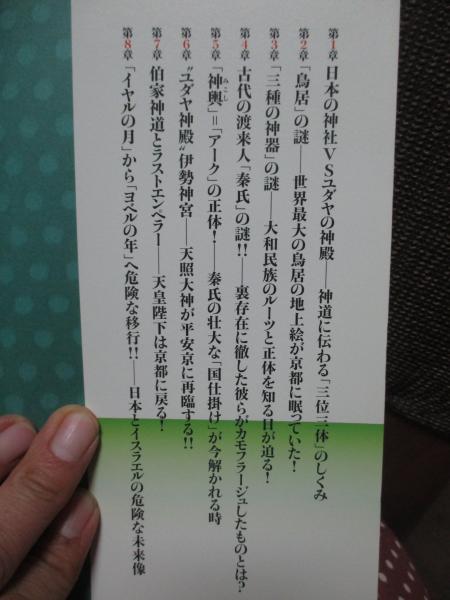 第1章 日本の神社VSユダヤの神殿――神道に伝わる「三位三体」のしくみ
第2章 「鳥居」の謎――世界最大の鳥居の地上絵が京都に眠っていた！
第3章 「三種の神器」の謎――大和民族のルーツと正体を知る日が迫る！
第4章 古代の渡来人「秦氏」の謎!!――裏存在に徹した彼らがカモフラージュしたものとは？
第5章 「神輿」＝「アーク」の正体！――秦氏の壮大な「国仕掛け」が今解かれる時
みこし
第6章 “ユダヤ神殿”伊勢神宮――天照大神が平安京に再臨する!!
第7章 伯家神道とラストエンペラー――天皇陛下は京都に戻る！
第8章 「イヤルの月」から「ヨベルの年」へ危険な移行!!――日本とイスラエルの危険な未来像